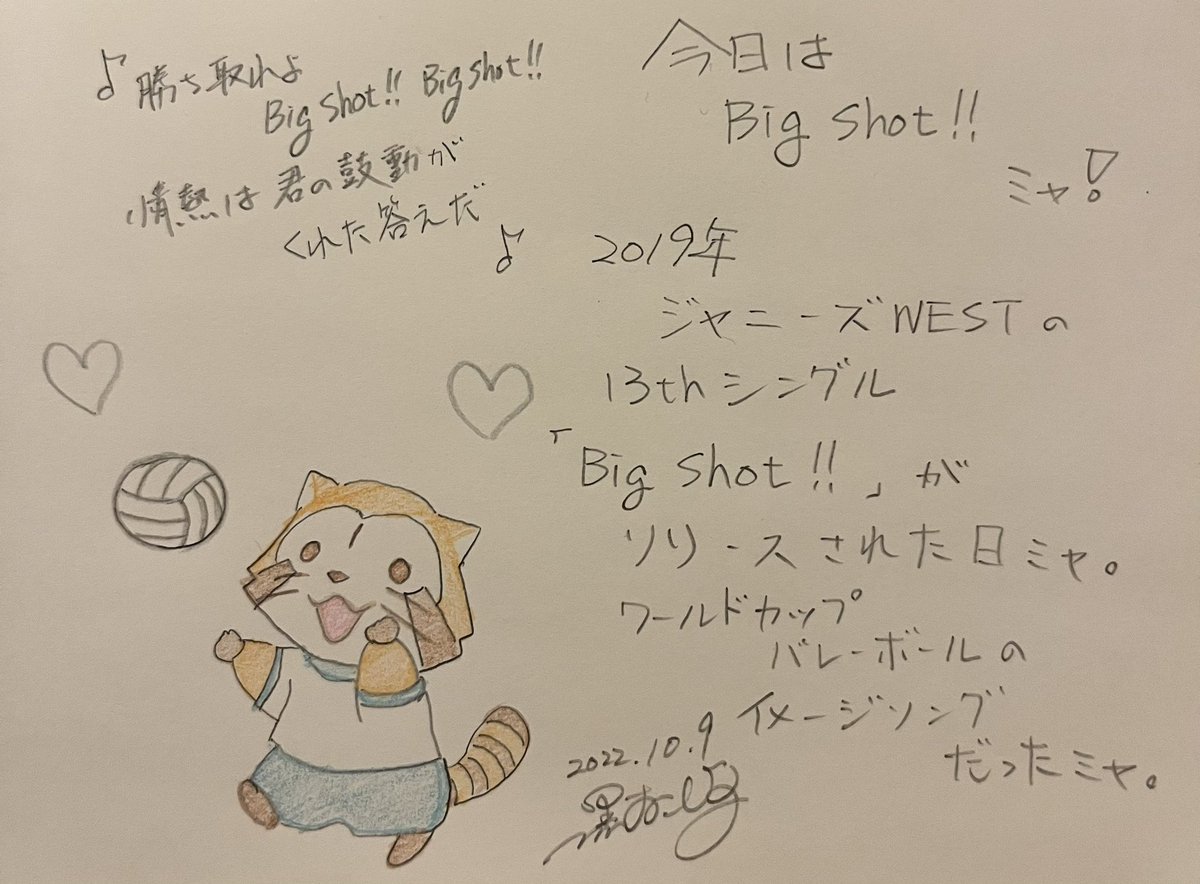 ♪勝ち取れよ
Big Shot!! Big Shot!!
情熱は君の鼓動が
くれた答えだ♪
今日は
Big Shot!!
ミャ!
2019年
ジャニーズWESTの
13thシングル
「Big Shot!!」が
リリースされた日ミャ。
ワールドカップ
バレーボールの
イメージソング
だったミャ。
2022.10.9